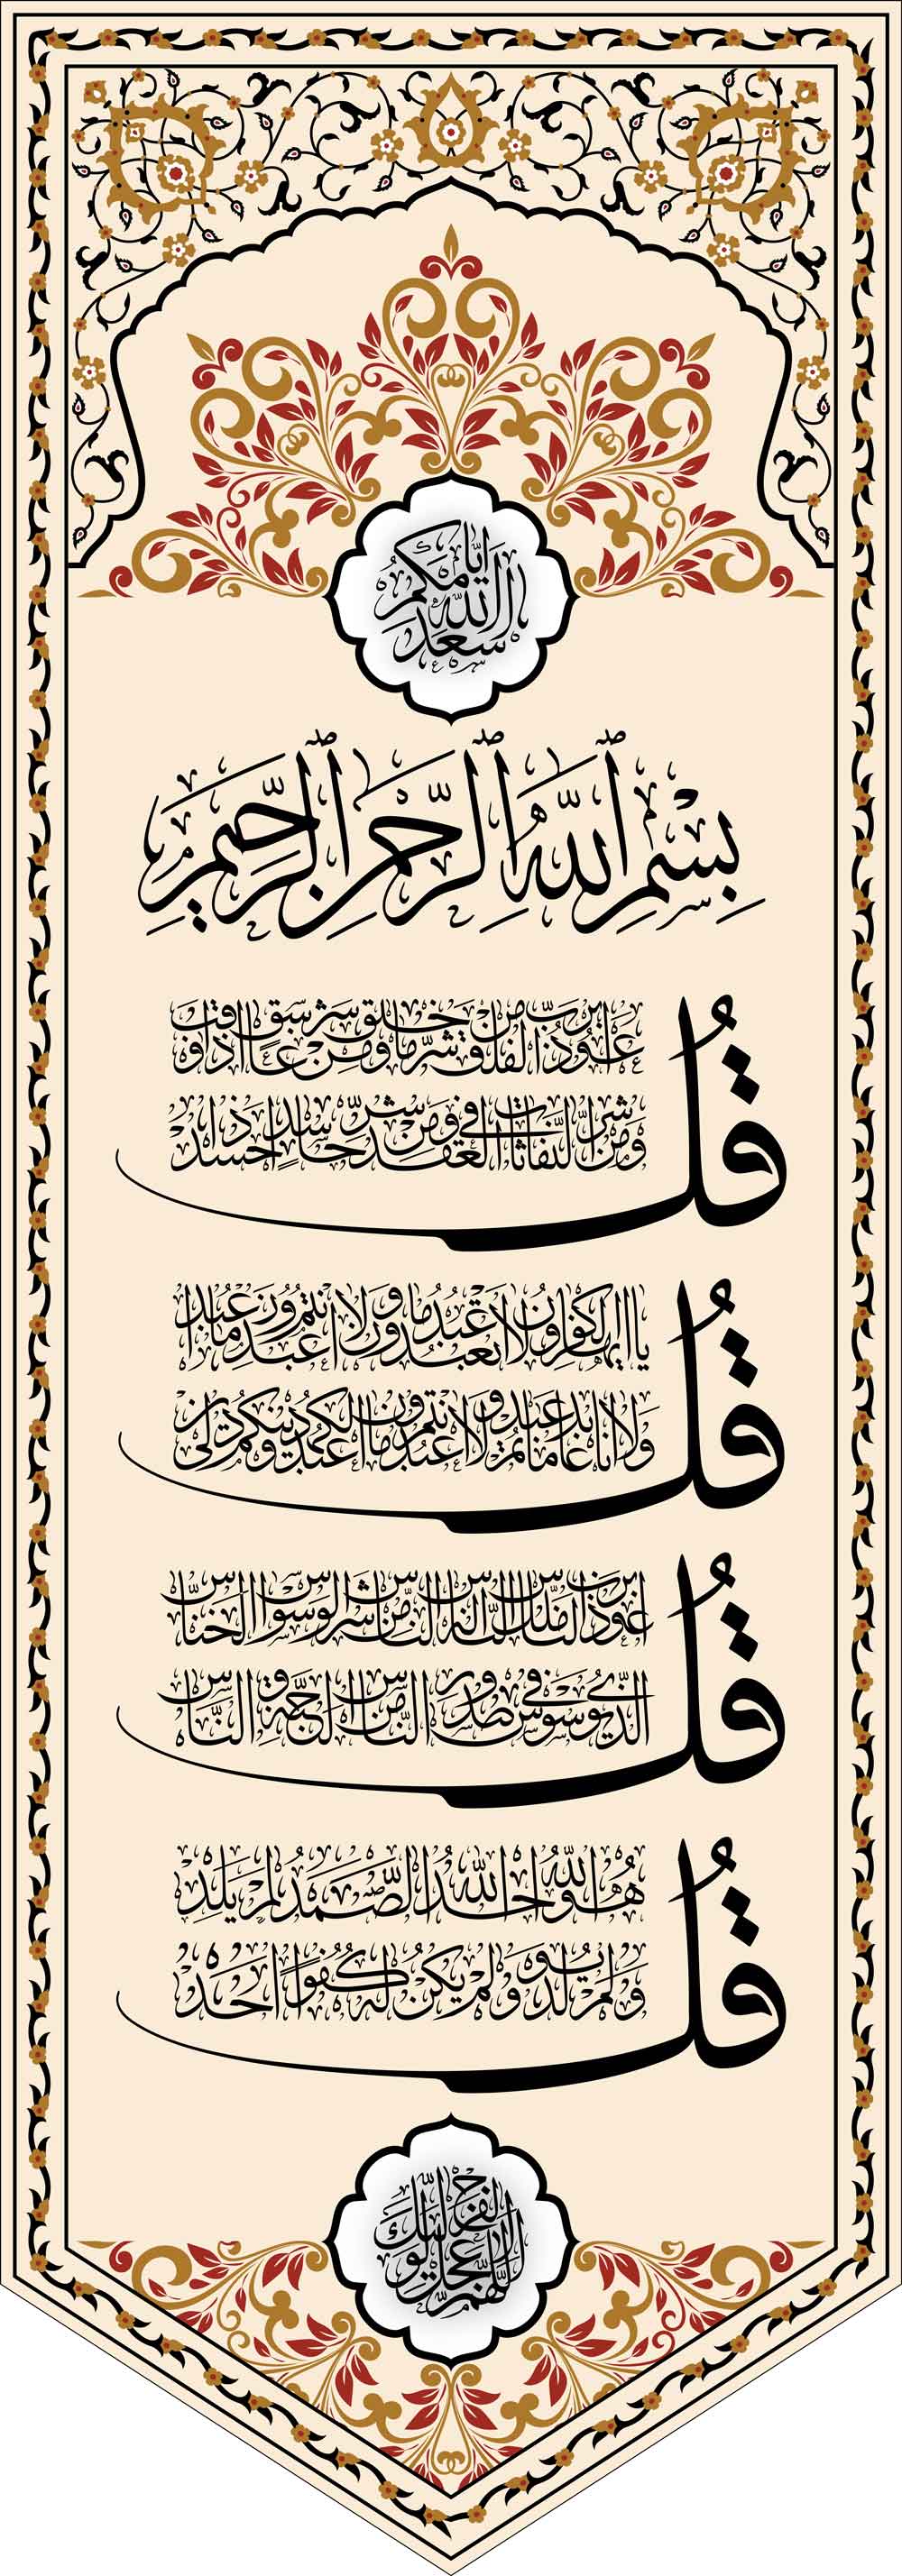 أسعد الله أيامكم
بِسْمِ ٱللَّهِ ٱلرَّحْمَٰنِ ٱلرَّحِيمِ
قُلْ
أعوذ برب الفلق من شر ما خلق ومن شر غاسق إذا وقب
ومن شر النفاثات في العقد ومن شر حاسد إذا حسد
قُلْ
يا أيها الكافرون لا أعبد ما تعبدون ولا أنتم عابدون ما أعبد
ولا أنا عابد ما عبدتم ولا أنتم عابدون ما أعبد لكم دينكم ولي دين
قُلْ
أعوذ برب الناس ملك الناس إله الناس من شر الوسواس الخناس
الذي يوسوس في صدور الناس من الجنة والناس
قُلْ
هو الله أحد الله الصمد لم يلد
ولم يولد ولم يكن له كفوا أحد
اللهم عجل لوليك الفرج